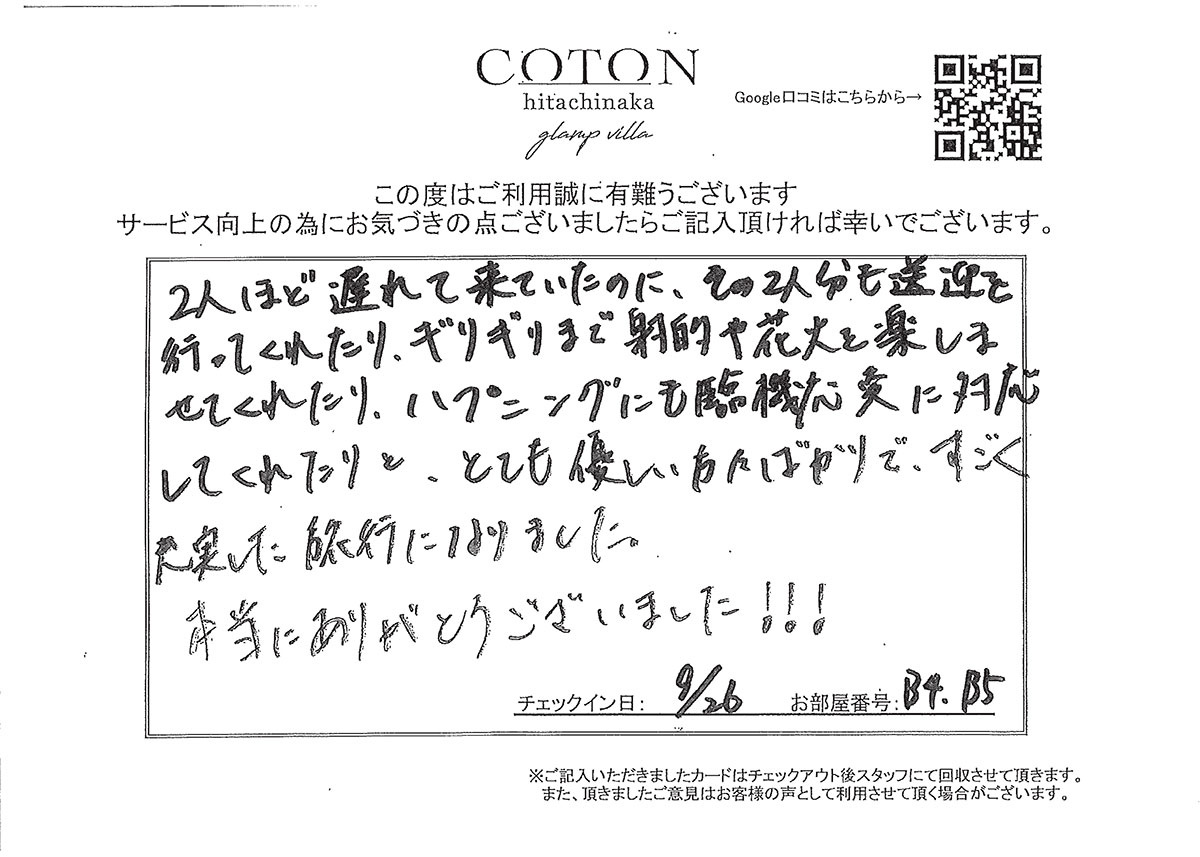 COTON
hitachinaka
glamp villa
Google口コミはこちらから→
この度はご利用誠に有難うございます
サービス向上の為にお気づきの点ございましたらご記入頂ければ幸いでございます。
2人ほど遅れて来ていたのに、その2人分も送迎を
行ってくれたり、ギリギリまで射的や花火を楽しま
せてくれたり、ハプニングにも臨機応変に対応
してくれたりと、とても優しい方々ばかりで、すごく
充実した旅行になりました。
本当にありがとうございました!!!
チェックイン日: 9/26 お部屋番号: B4. B5
※ご記入いただきましたカードはチェックアウト後スタッフにて回収させて頂きます。
また、頂きましたご意見はお客様の声として利用させて頂く場合がございます。